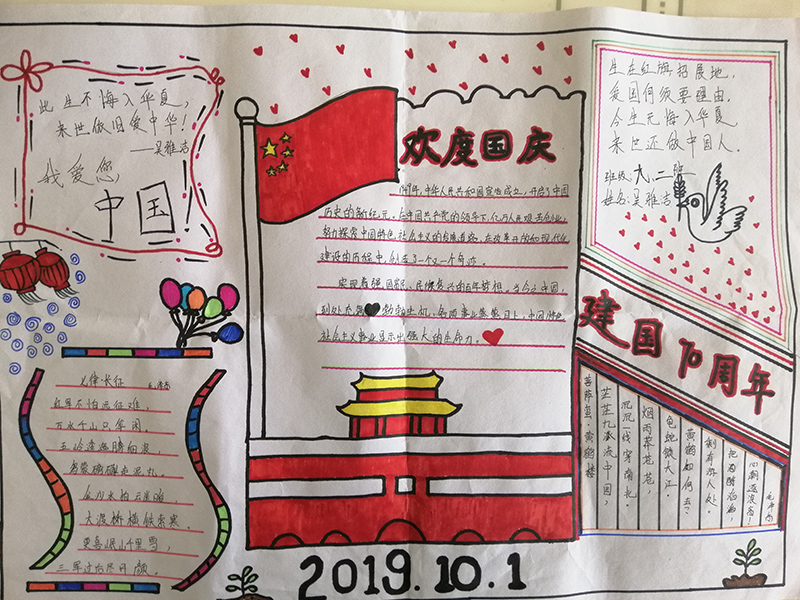 此生不悔入华夏,
来世依旧爱中华!
——吴雅洁
我爱您,
中国
欢度国庆
1949年,中华人民共和国宣告成立,开启了中国
历史的新纪元。在中国共产党的领导下,亿万人民艰苦创业,
努力探索中国特色社会主义的发展道路,在改革开放和现代化
建设的历程中,创造了一个又一个奇迹。
实现着强国富民、民族复兴的百年梦想。当今之中国,
到处充满勃勃生机,各项事业蒸蒸日上,中国特色
社会主义事业显示出强大的生命力。
生在红旗招展地,
爱国何须要理由。
今生无悔入华夏
来世还做中国人。
班级:九、二班
姓名:吴雅洁
建国70周年
七律·长征
毛泽东
红军不怕远征难,
万水千山只等闲。
五岭逶迤腾细浪,
乌蒙磅礴走泥丸。
金沙水拍云崖暖,
大渡桥横铁索寒。
更喜岷山千里雪,
三军过后尽开颜。
菩萨蛮·黄鹤楼
茫茫九派流中国,
沉沉一线穿南北。
烟雨莽苍苍,
龟蛇锁大江。
黄鹤知何去?
剩有游人处。
把酒酹滔滔,
心潮逐浪高!
毛泽东
2019.10.1